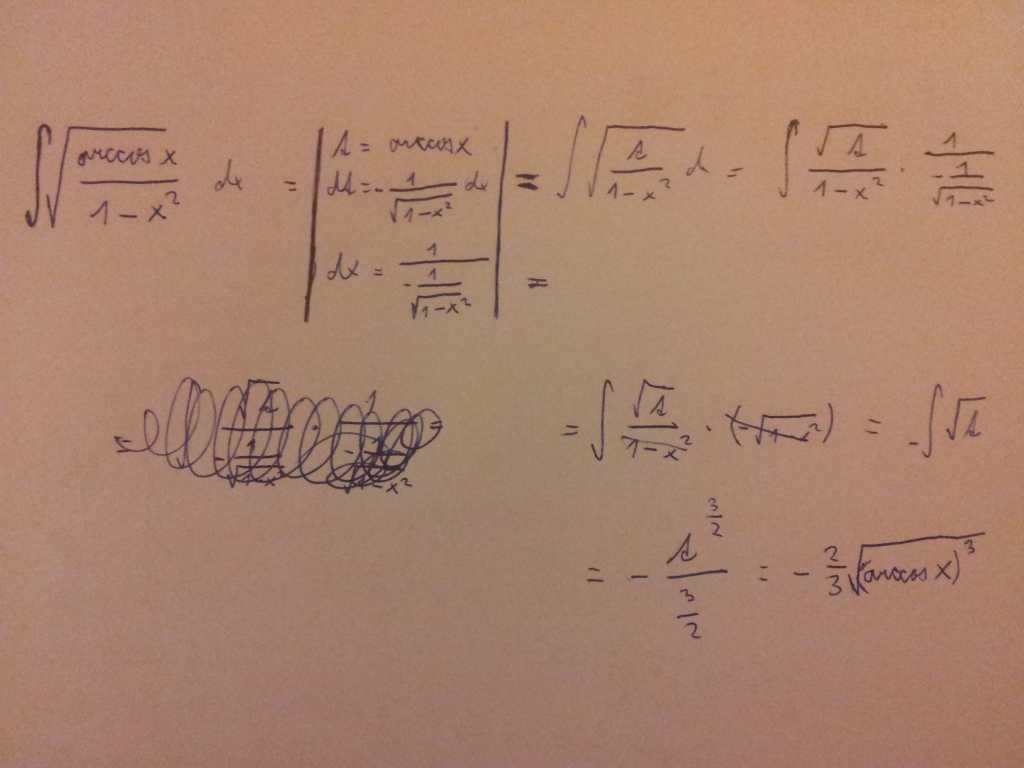 ∫√(arccos x / 1-x²) dx = | t = arccos x | = ∫√(t / 1-x²) d = ∫ √t / 1-x² · 1 / (-1/√1-x²)
dt = - 1/√1-x² dx
dx = 1 / (-1/√1-x²) | =
= ∫ √t / 1-x² · (-√1-x²) = -∫√t
= - t^(3/2) / (3/2) = - 2/3 √(arccos x)³